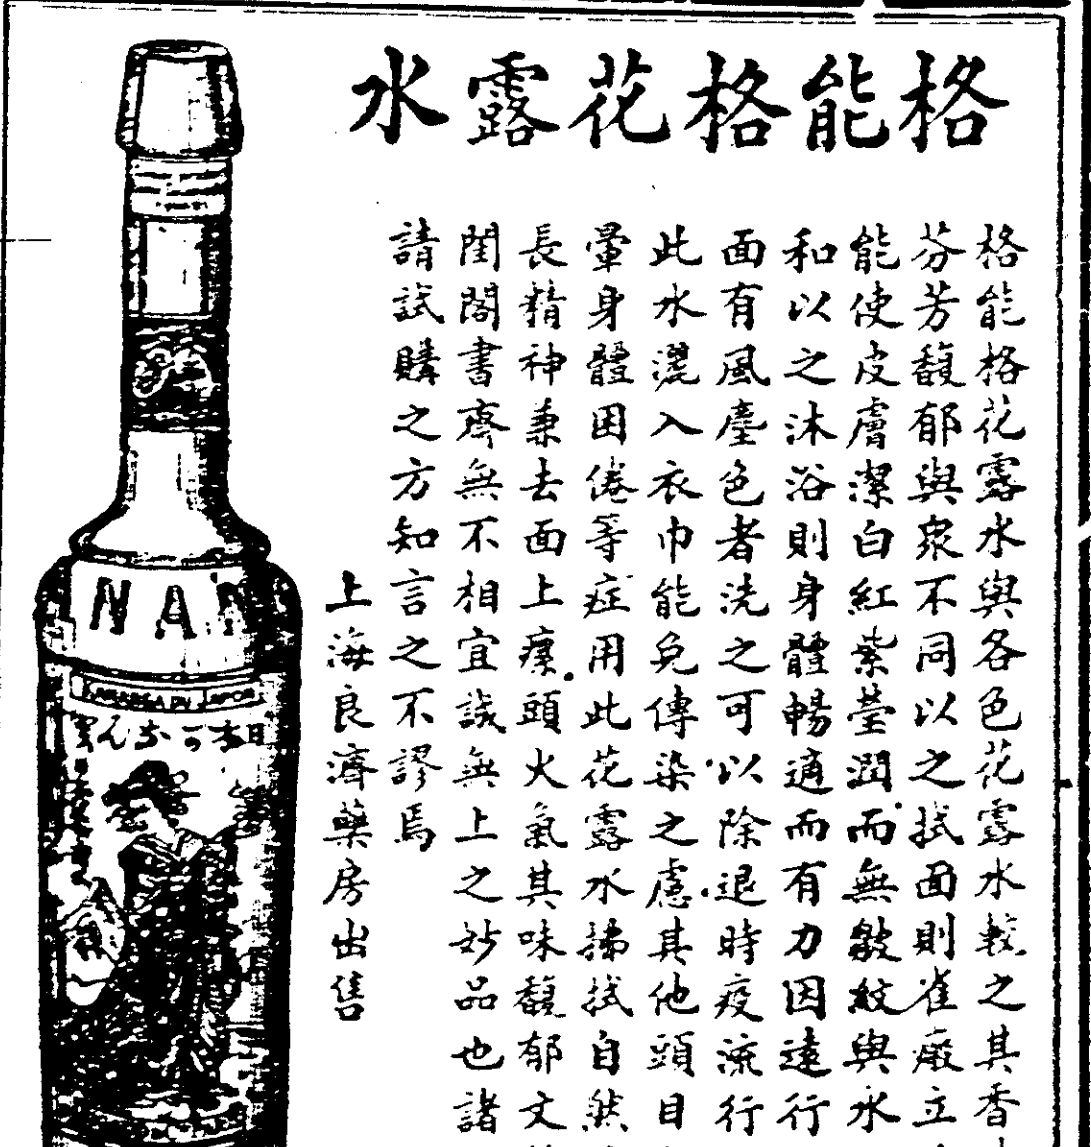 格能格花露水
格能格花露水與各色花露水較之其香
芬芳馥郁與衆不同以之拭面則雀瘢立
能使皮膚潔白紅紫瑩潤而無皺紋與水
和以之沐浴則身體暢適而有力因遠行
面有風塵色者洗之可以除退時疫流行
此水灑入衣巾能免傳染之慮其他頭目
暈身體困倦等症用此花露水拂拭自然
長精神兼去面上瘰頭火氣其味馥郁文
閨閣書齋無不相宜誠無上之妙品也諸
請試購之方知言之不謬焉
上海良濟藥房出售
NAN